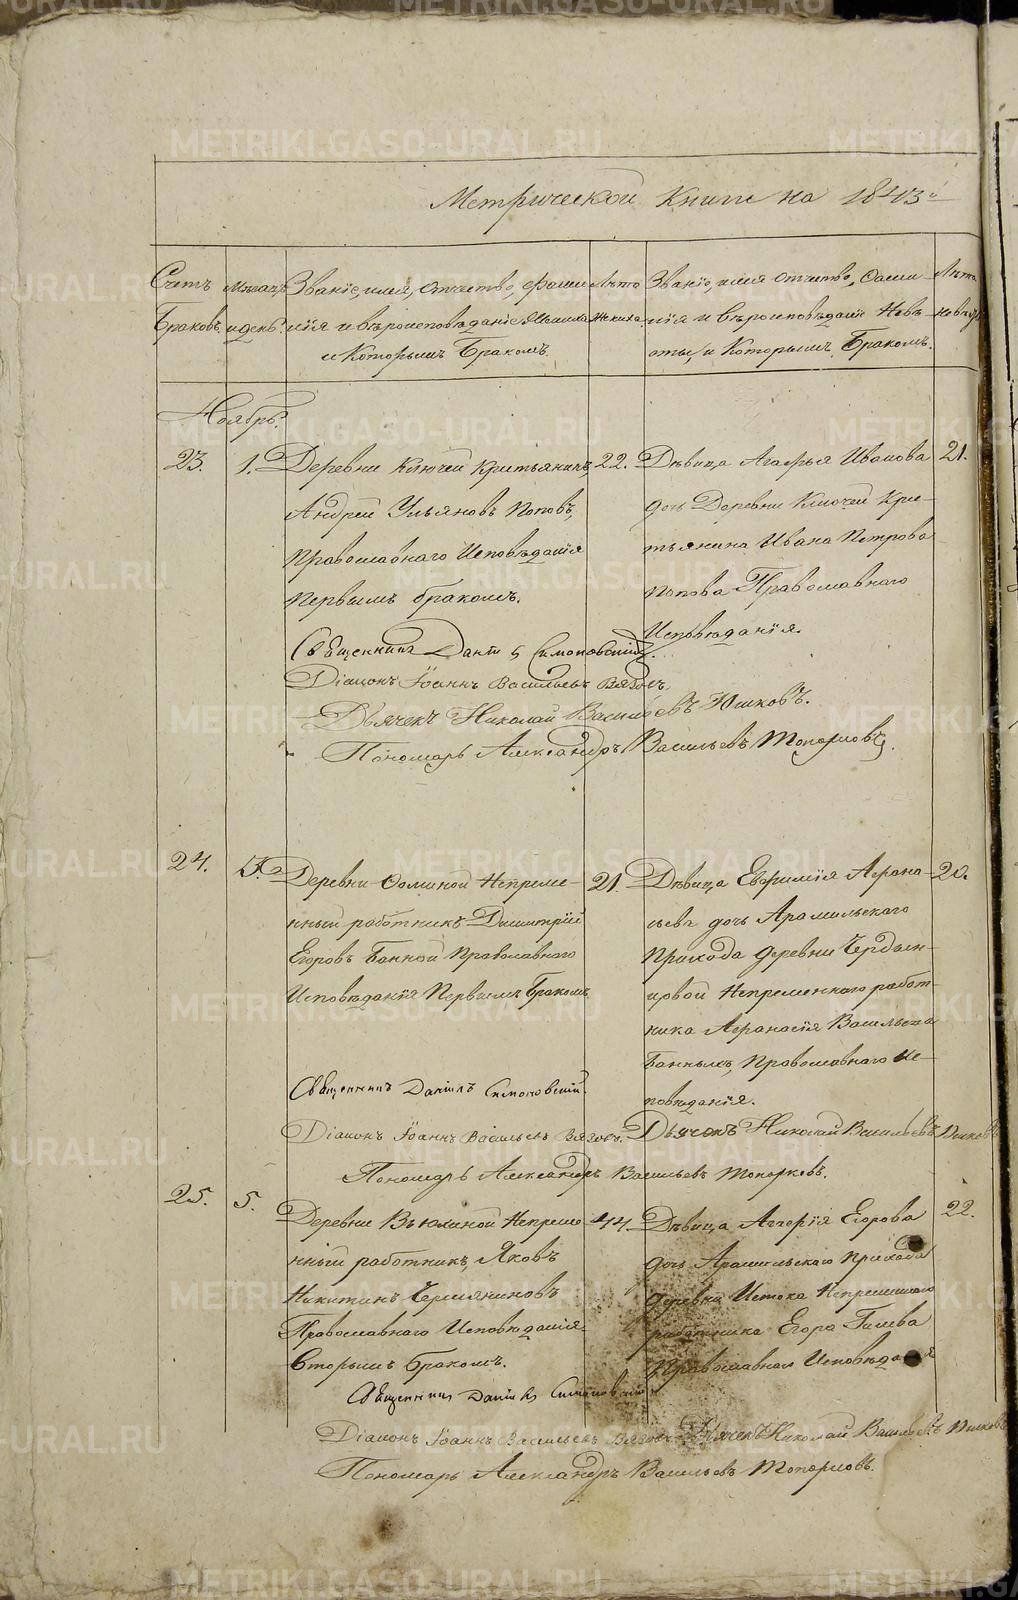 Метрической Книги на 1843й
Счетъ Браковъ.
Мѣсяцъ и день.
Званіе, имя, отчество, фами
лія и вѣроисповѣданіе Жениха
и Которымъ Бракомъ.
Лѣта Жениха.
Званіе, имя отчество, Фами
лія и Вѣроисповѣданіе Невѣ
сты, и Которымъ Бракомъ.
Лѣта невѣсты
Ноябрь.
23. 1.
Деревни Ключей Крестьянинъ
Андрей Ульяновъ Поповъ,
Православнаго Исповѣданія
Первымъ бракомъ.
22.
Дѣвица Агафья Иванова
дочь Деревни Ключей Крес-
тьянина Ивана Петрова
Попова Православнаго
Исповѣданія.
21.
Священникъ Даніилъ Симоновскій.
Діаконъ Іоаннъ Васильевъ Вязовъ
Дьячекъ Николай Васильевъ Юшковъ.
Пономарь Александръ Васильевъ Топорковъ.
24. 5.
Деревни Фоминой Непреме-
нный работникъ Димитрій
Егоровъ Банной Православнаго
Исповѣданія Первымъ Бракомъ
21.
Дѣвица Евфимія Афона-
сьева дочь Арамильскаго
Прихода деревни Чердын-
цовой Непременнаго работ-
ника Афанасія Васильева
Банныхъ, Православнаго Ис-
повѣданія.
20.
Священникъ Даніилъ Симоновскій.
Діаконъ Іоаннъ Васильевъ Вязовъ. Дьячекъ Николай Васильевъ Юшковъ
Пономарь Александръ Васильевъ Топорковъ.
25. 5.
Деревни Вьюхиной Непреме
нный работникъ, Яковъ
Никитинъ Черемяниновъ
Православнаго Исповѣданія
Вторымъ бракомъ.
44.
Дѣвица Егорова
дочь Арамильскаго Прихода
деревни Истока Непременнаго
работника Егора Гилева
Православнаго Исповѣданія
22.
Священникъ Даніилъ Симоновскій
Діаконъ Іоаннъ Васильевъ Вязовъ Дьячекъ Николай Васильевъ Юшковъ
Пономарь Александръ Васильевъ Топорковъ.
METRIKI.GASO-URAL.RU